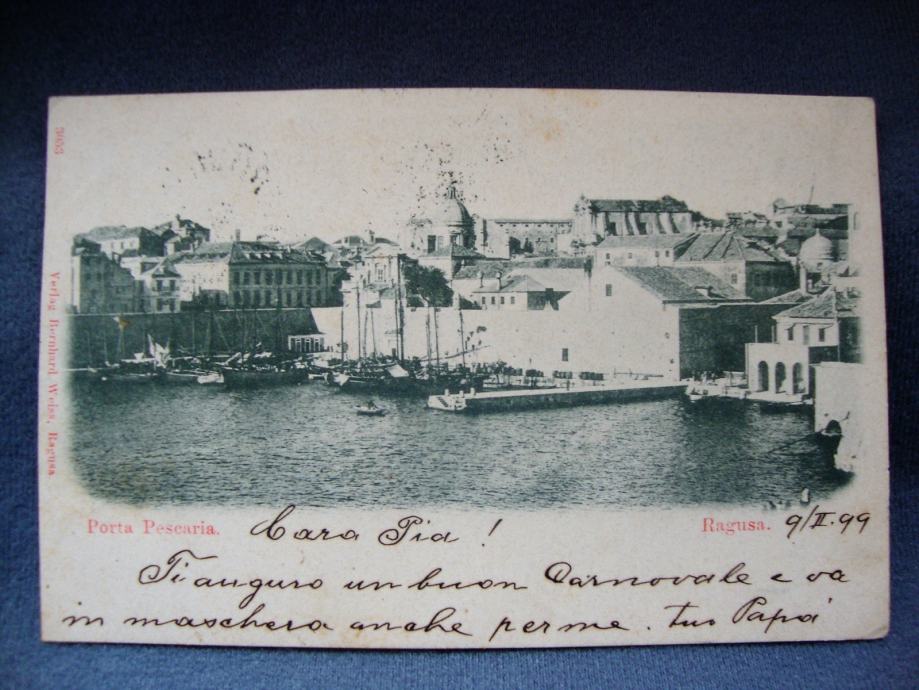 3053
Verlag Bernhard Weiss, Ragusa.
Porta Pescaria.
Ragusa.
9/II.99
Cara Pia!
Ti auguro un buon Carnovale e va
in maschera anche per me. tuo Papá